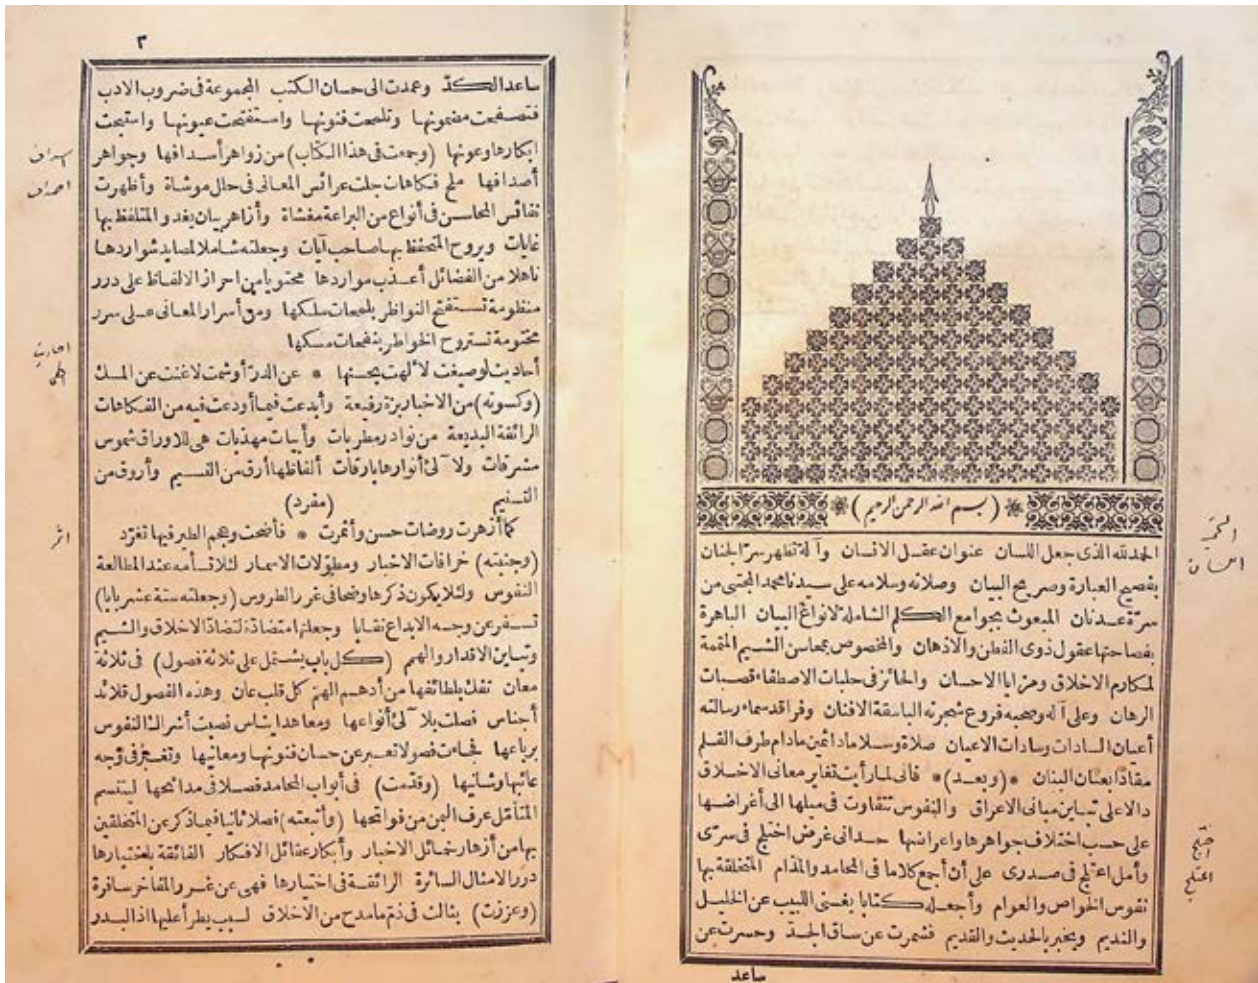 (بسم الله الرحمن الرحيم)
الحمد لله الذى جعل اللسان عنوان عقل الانسان وآلة تظهر سر الجنان
بفصيح العبارة وصريح البيان وصلاته وسلامه على سيدنا محمد المجتبى من
سرة عدنان المبعوث بجوامع الكلم الشاملة لانواع البيان الباهرة
بفصاحتها عقول ذوى الفطن والاذهان والمخصوص بمحاسن الشيم المتممة
لمكارم الاخلاق ومزايا الاحسان والحائز فى حلبات الاصطفاء قصبات
الرهان وعلى آله وصحبه فروع شجرته الباسقة الافنان وفراقد سماء رسالته
أعيان السادات وسادات الاعيان صلاة وسلاما دائمين مادام طرف القلم
مقادا بعنان البنان * (وبعد) * فانى لما رأيت تغاير معانى الاخلاق
دالا على تباين مبانى الاعراق والنفوس تتفاوت فى ميلها الى أغراضها
على حسب اختلاف جواهرها واعراضها حدانى غرض اختلج فى سرى
وأمل اعتلج فى صدرى على أن أجمع كلاما فى المحامد والمذام المتخلقة بها
نفوس الخواص والعوام وأجعله كتابا يغنى اللبيب عن الخليل
والنديم ويخبر بالحديث والقديم فشمرت عن ساق الجد وحسرت عن
ساعد
٣
ساعد الكد وعمدت الى حسان الكتب المجموعة فى ضروب الادب
فتصفحت مضمونها وتلمحت فنونها واستفتحت عيونها واستبحت
ابكارها وعونها (وجمعت فى هذا الكتاب) من زواهر أسدافها وجواهر
أصدافها ملح فكاهات جلت عرائس المعانى فى حلل موشاة وأظهرت
نفائس المحاسن فى أنواع من البراعة مغشاة وأزاهر بيان يغدو المتلفظ بها
غايات ويروح المتحفظ بها صاحب آيات وجعلته شاملا لمصايد شواردها
ناهلا من الفضائل أعذب مواردها محتويا من احراز الالفاظ على درر
منظومة تستفتح النواظر بلمحات سلكها ومن أسرار المعانى على سرر
مختومة تستروح الخواطر بنفحات مسكها
أحاديث لو صيغت لألهت بحسنها * عن الدر أو شمت لاغنت عن المسك
(وكسوته) من الاخبار بزة رفيعة وأبدعت فيما أودعت فيه من الفكاهات
الرائقة البديعة من نوادر مطربات وأبيات مهذبات هى للاوراق شموس
مشرقات ولآلئ أنوارها بارقات ألفاظها أرق من النسيم وأروق من
التسنيم (مفرد)
كما أزهرت روضات حسن وأثمرت * فأضحت وعجم الطير فيها تغرد
(وجنبته) خرافات الاخبار ومطولات الاسمار لئلا تسأمه عند المطالعة
النفوس ولئلا يكون ذكرها وضحا فى غرر الطروس (وجعلته ستة عشر بابا)
تسفر عن وجه الابداع نقابا وجعلتها متضادة لتضاد الاخلاق والشيم
وتباين الاقدار والهمم (كل باب يشتمل على ثلاثة فصول) فى ثلاثة
معان تفك بلطائفها من أدهم الهم كل قلب عان وهذه الفصول قلائد
أجناس فصلت بلآلئ أنواعها ومعاهد ايناس نصبت أشراك النفوس
برباعها فجاءت فصولا تعبر عن حسان فنونها ومعانيها وتغبر فى وجه
عائبها وشانيها (وقدمت) فى أبواب المحامد فصلا فى مدائحها ليتنسم
المتأمل عرف اليمن من فواتحها (وأتبعته) فصلا ثانيا فيما ذكر عن المتخلقين
بها من أزهار خمائل الاخبار وأبكار عقائل الافكار الفائقة باختيارها
درر الامثال السائرة الرائقة فى اختبارها فهى عن غرر المفاخر سافرة
(وعززت) بثالث فى ذم ما مدح من الاخلاق لسبب يطرأ عليها اذ البدو